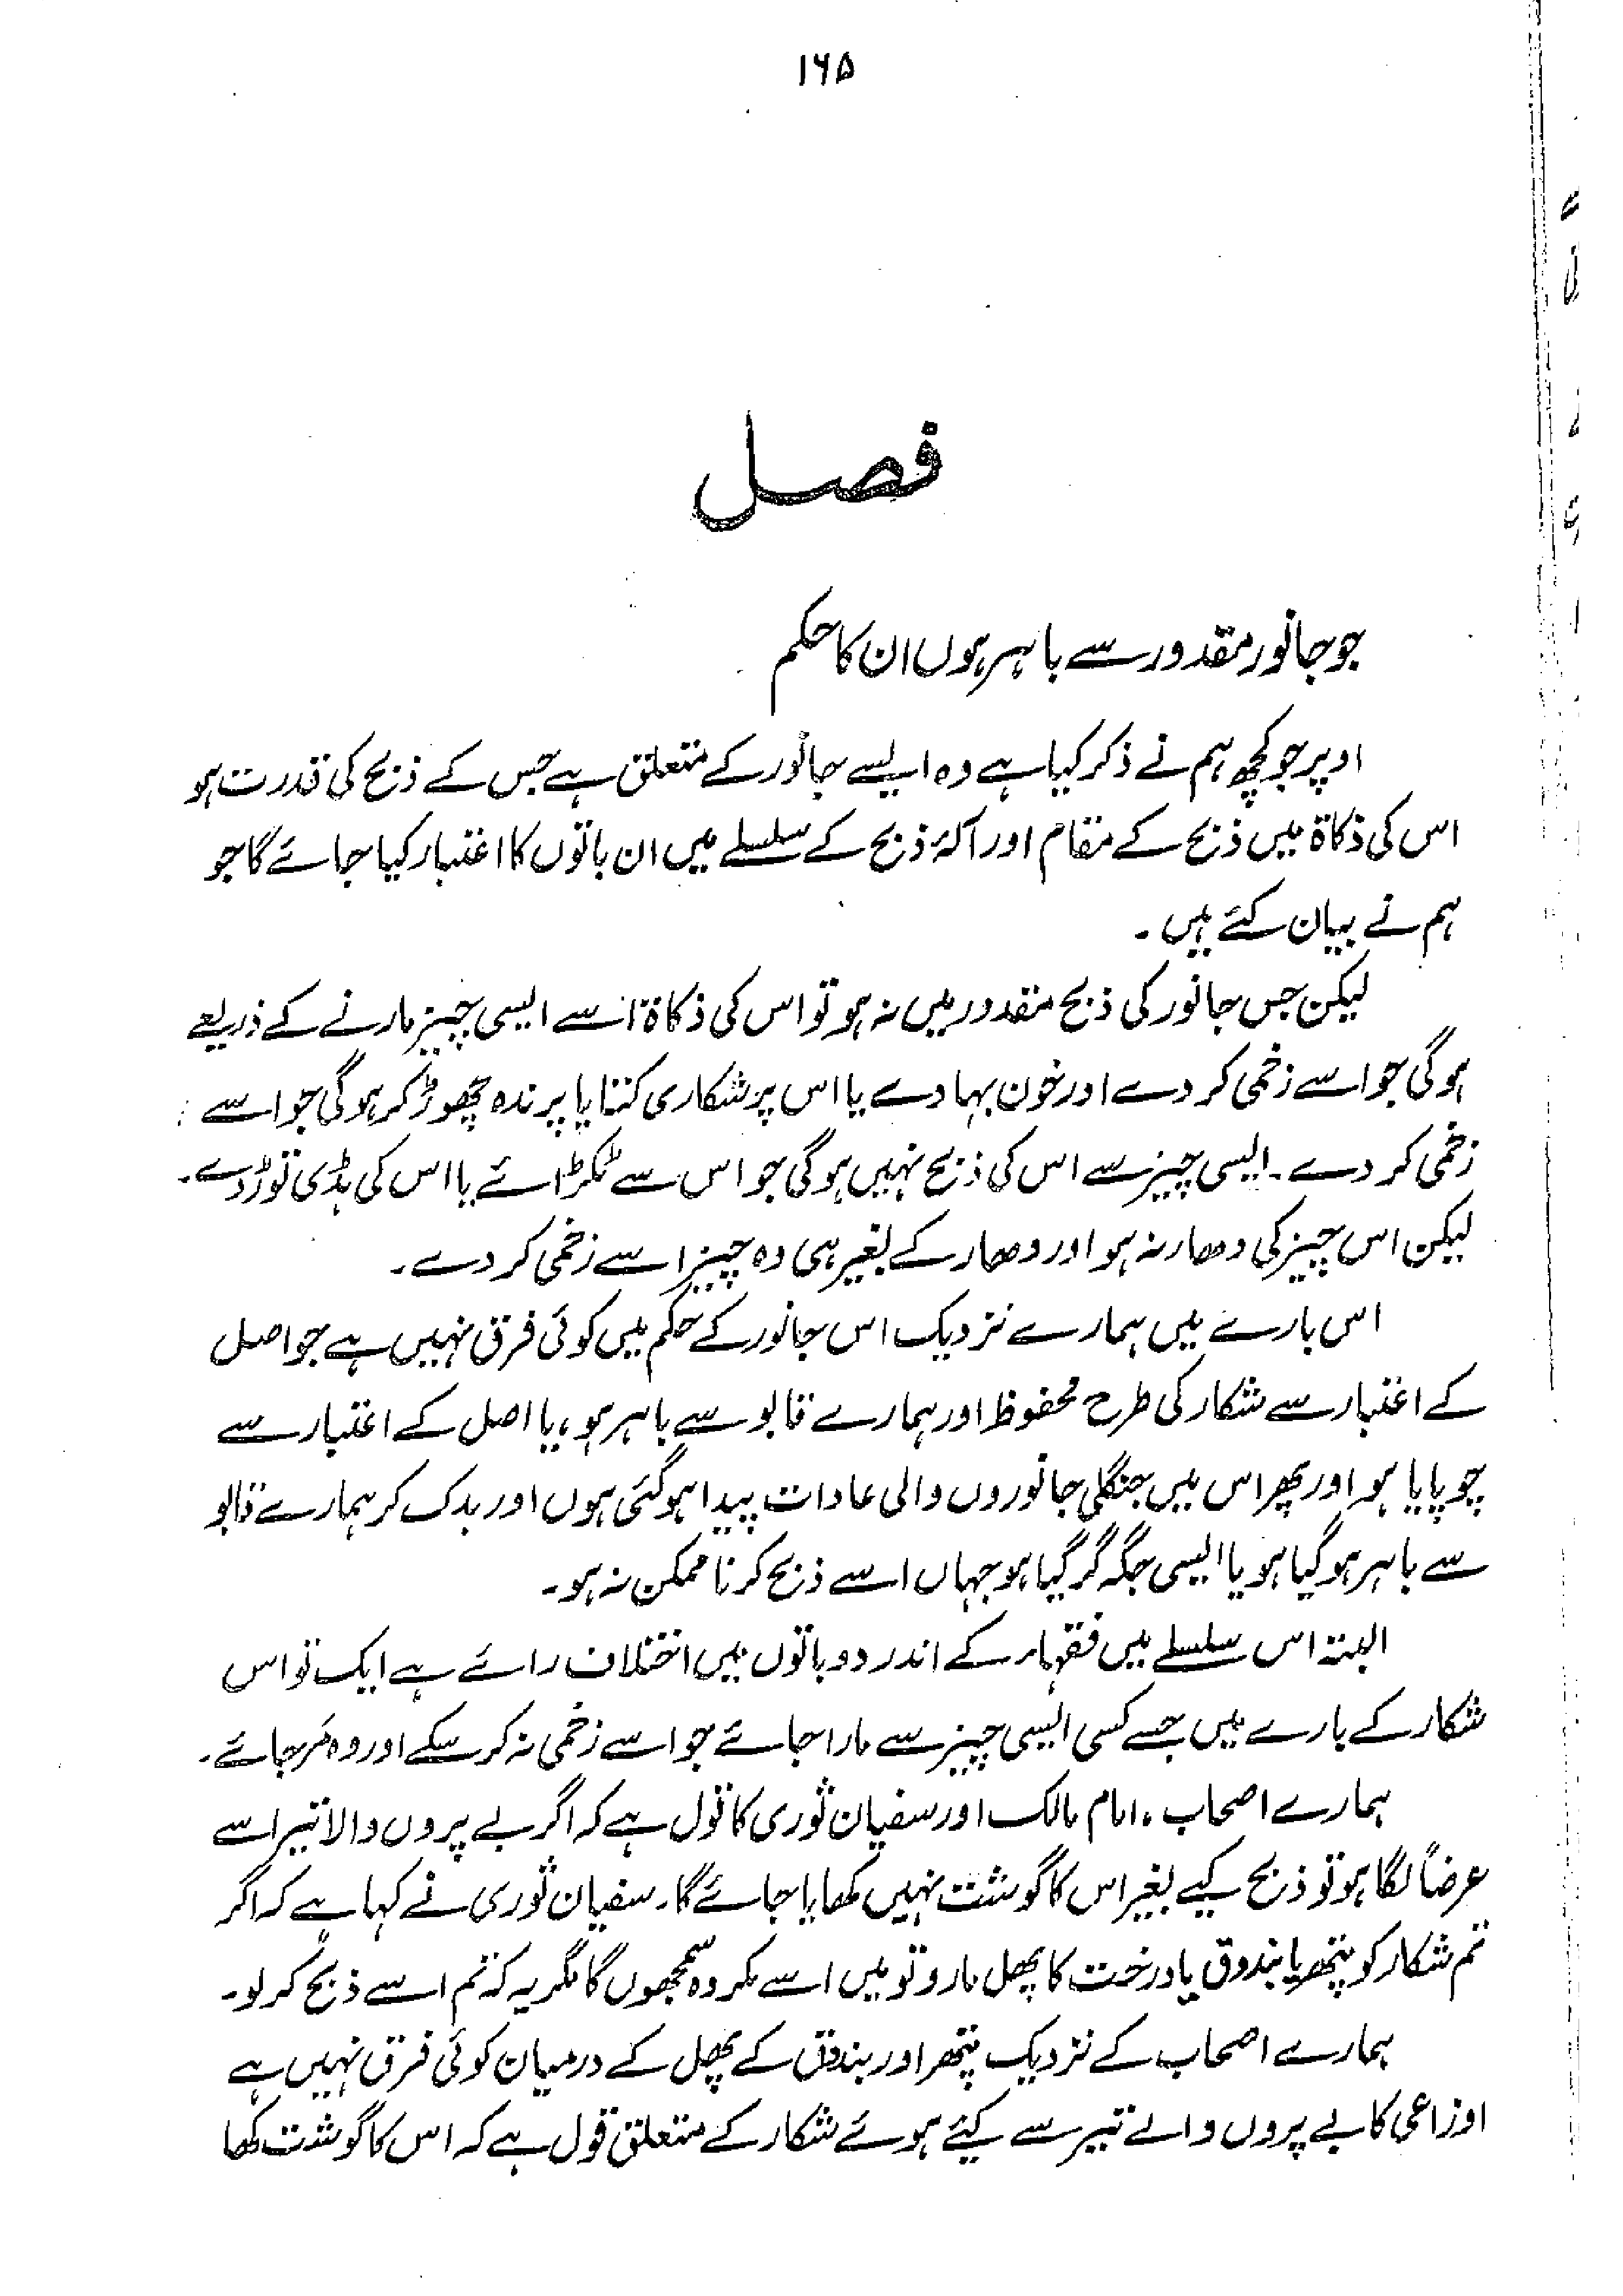 ۱۶۵
فصل
جو جانور مقدور سے باہر ہوں ان کا حکم
اوپر جو کچھ ہم نے ذکر کیا ہے وہ ایسے جانور کے متعلق ہے جس کے ذبح کی قدرت ہو
اس کی ذکاۃ میں ذبح کے مقام اور آلۂ ذبح کے سلسلے میں ان باتوں کا اعتبار کیا جائے گا جو
ہم نے بیان کئے ہیں۔
لیکن جس جانور کی ذبح مقدور میں نہ ہو تو اس کی ذکاۃ اسے ایسی چیز مارنے کے ذریعے
ہوگی جو اسے زخمی کر دے اور خون بہا دے یا اس پر شکاری کتا یا پرندہ چھوڑ کر ہوگی جو اسے
زخمی کر دے۔ ایسی چیز سے اس کی ذبح نہیں ہوگی جو اس سے ٹکڑائے یا اس کی ہڈی توڑ دے۔
لیکن اس چیز کی دھار نہ ہو اور دھار کے بغیر ہی وہ چیز اسے زخمی کر دے۔
اس بارے میں ہمارے نزدیک اس جانور کے حکم میں کوئی فرق نہیں ہے جو اصل
کے اعتبار سے شکار کی طرح محفوظ اور ہمارے قابو سے باہر ہو، یا اصل کے اعتبار سے
چوپایا ہو اور پھر اس میں جنگلی جانوروں والی عادات پیدا ہوگئی ہوں اور بدک کر ہمارے قابو
سے باہر ہو گیا ہو یا ایسی جگہ گر گیا ہو جہاں اسے ذبح کرنا ممکن نہ ہو۔
البتہ اس سلسلے میں فقہاء کے اندر دو باتوں میں اختلاف رائے ہے ایک تو اس
شکار کے بارے میں جسے کسی ایسی چیز سے مارا جائے جو اسے زخمی نہ کر سکے اور وہ مَر جائے۔
ہمارے اصحاب، امام مالک اور سفیان ثوری کا قول ہے کہ اگر بے پروں والا تیر اسے
عرضاً لگا ہو تو ذبح کیے بغیر اس کا گوشت نہیں کھایا جائے گا۔ سفیان ثوری نے کہا ہے کہ اگر
تم شکار کو پتھر یا بندوق یا درخت کا پھل مارو تو میں اسے مکروہ سمجھوں گا مگر یہ کہ تم اسے ذبح کر لو۔
ہمارے اصحاب کے نزدیک پتھر اور بندوق کے پھل کے درمیان کوئی فرق نہیں ہے
اوزاعی کا بے پروں والے تیر سے کیئے ہوئے شکار کے متعلق قول ہے کہ اس کا گوشت کھا